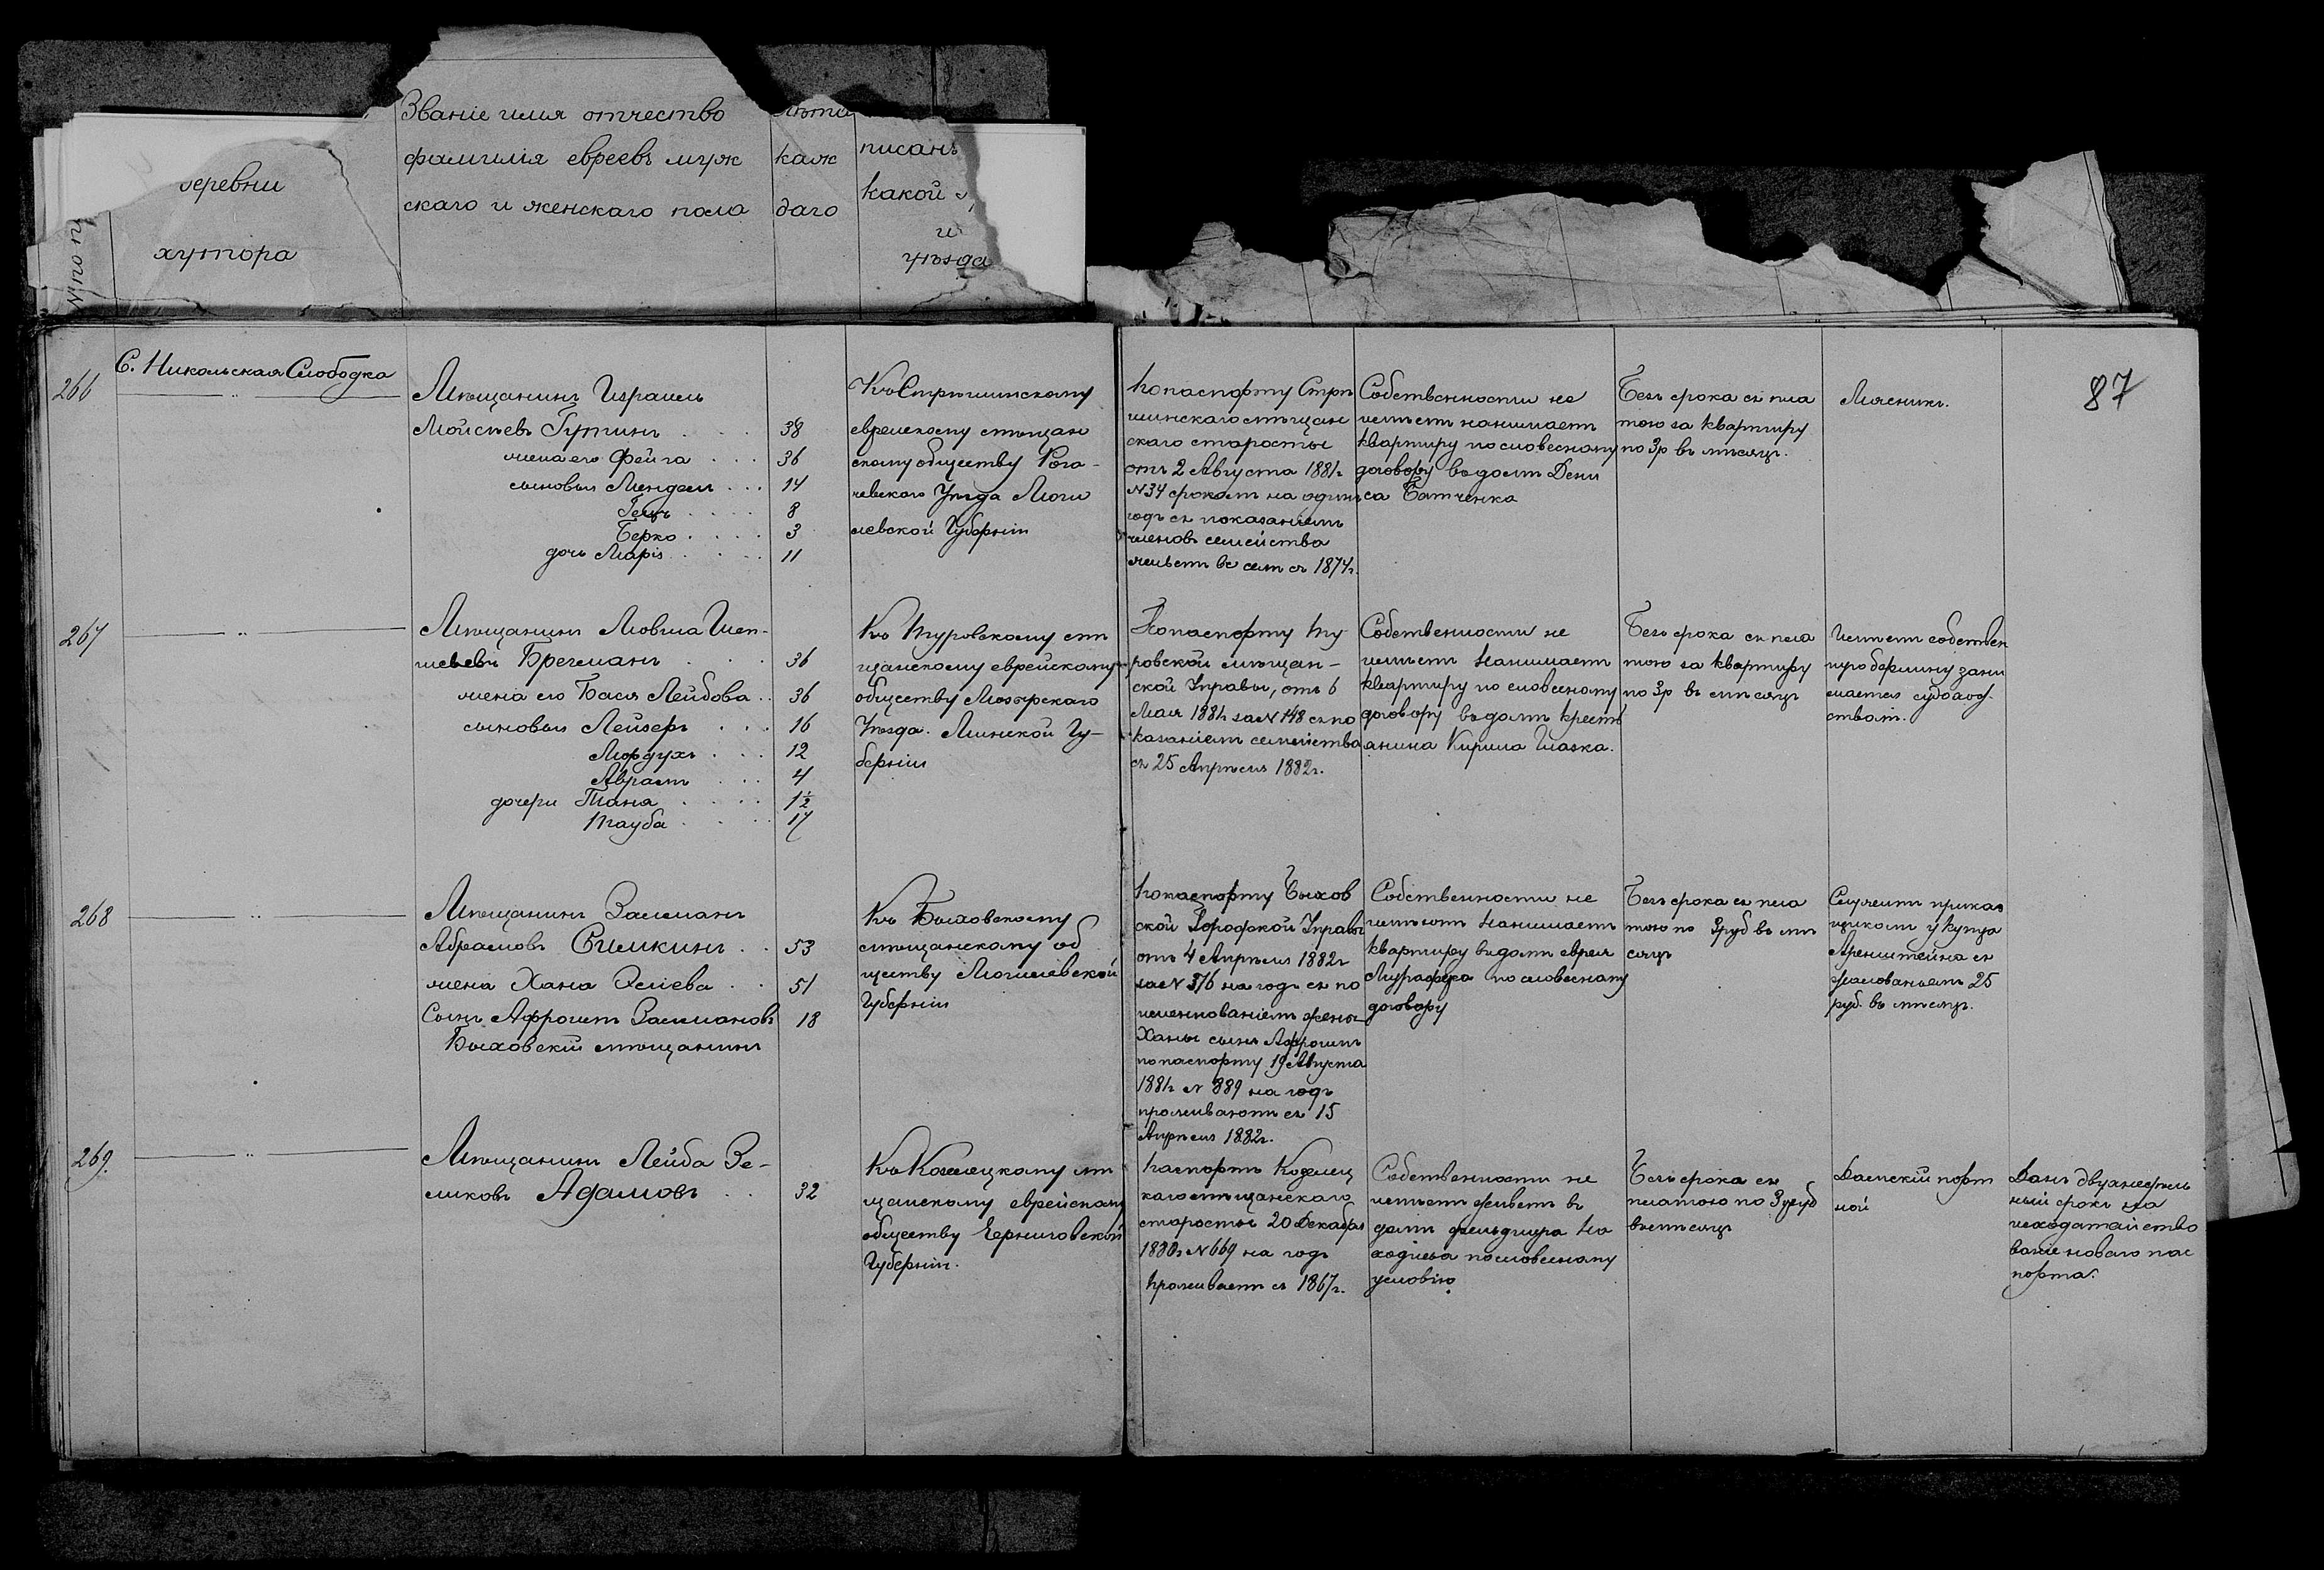 Званіе имя отчество
фамилія евреевъ муж
скаго и женскаго пола
лѣта
каж
даго
писанъ
какой
и
уѣзда
деревни
хутора
№ по п
87
266
С. Никольская Слободка
Мѣщанинъ Израиль
Мойсѣевъ Гутинъ . . . 38
жена его Фейга . . . 36
сыновья Мендель . . . 14
Гецъ . . . . 8
Берко . . . . 3
дочь Маріѣ . . . . 11
Къ Стрѣшинскому
еврейскому мѣщан
скому обществу Рога-
чевскаго Уѣзда Моги
левской Губерніи
По паспорту Стрѣ
шинскаго мѣщан
скаго старосты
отъ 2 Августа 1881г
№34 срокомъ на одинъ
годъ съ показаніемъ
членовъ семейства
живетъ въ селѣ съ 1874г.
Собственности не
имѣетъ нанимаетъ
квартиру по словесному
договору въ домѣ Дени
са Батченка
Безъ срока съ пла
тою за квартиру
по 3р въ мѣсяцъ.
Мясникъ.
267
Мѣщанинъ Мовша Шеп-
шевевъ Брегманъ . . . 36
жена его Бася Лейбова . . 36
сыновья Лейзеръ . . . 16
Мордухъ . . . 12
Абрамъ . . . 4
дочери Тана . . . . 1½
Тауба . . . . 17
Къ Туровскому мѣ
щанскому еврейскому
обществу Мозырскаго
Уѣзда. Минской Гу-
берніи
По паспорту Ту-
ровской мѣщан-
ской Управы, отъ 6
Мая 1881г за № 148 съ по
казаніемъ семейства
съ 25 Апрѣля 1882г.
Собственности не
имѣетъ нанимаетъ
квартиру по словесному
договору въ домѣ кресть
анина Кирила Шазка.
Безъ срока съ пла
тою за квартиру
по 3р въ мѣсяцъ
Имѣетъ собствен
ную берлину зани
мается судоход
ствомъ.
268
Мѣщанинъ Залманъ
Абрамовъ Симкинъ . . 53
жена Хана Эліева . . 51
Сынъ Афроимъ Залмановъ 18
Быховскій мѣщанинъ
Къ Быховскому
мѣщанскому об
ществу Могилевской
Губерніи
По паспорту Быхов
ской Городской Управы
отъ 4 Апрѣля 1882г
за № 376 на годъ съ по
именованіемъ жены
Ханы сынъ Афроимъ
по паспорту 19 Августа
1881г № 889 на годъ
проживаютъ съ 15
Апрѣля 1882г.
Собственности не
имѣютъ нанимаетъ
квартиру въ домѣ еврея
по словесному
договору
Безъ срока съ пла
тою по 3руб въ мѣ
сяцъ
Служитъ прикащ
щикомъ у купца
Аренштейна съ
жалованьемъ 25
руб. въ мѣсяцъ.
269.
Мѣщанинъ Лейба Зе-
ликовъ Адамовъ . . 32
Къ Козелецкому мѣ
щанскому еврейскому
обществу Черниговской
Губерніи.
Паспортъ Козелец
каго мѣщанскаго
старосты 20 Декабря
1880г №669 на годъ
Проживаетъ съ 1867г.
Собственности не
имѣетъ живетъ въ
домѣ фельдшера На
ходіева по словесному
условію.
Безъ срока съ
платою по 3 руб
въ мѣсяцъ
Дамскій порт
ной
Данъ двухнедѣль
ный срокъ на
исходатайство
ваніе новаго пас
порта.